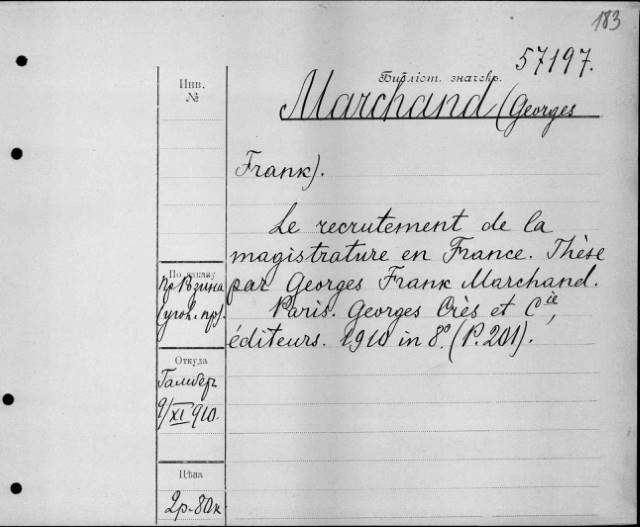 183
57197.
Библіот. значекъ.
Инв.
№
Marchand (Georges
Frank).
Le recrutement de la
magistrature en France. Thèse
par Georges Frank Marchand.
Paris. Georges Crès et Cie,
éditeurs. 1910 in 8º. (P. 201).
По заказу
пр.
(угол. пр).
Откуда
9/XI 910.
Цѣна
2р-80к